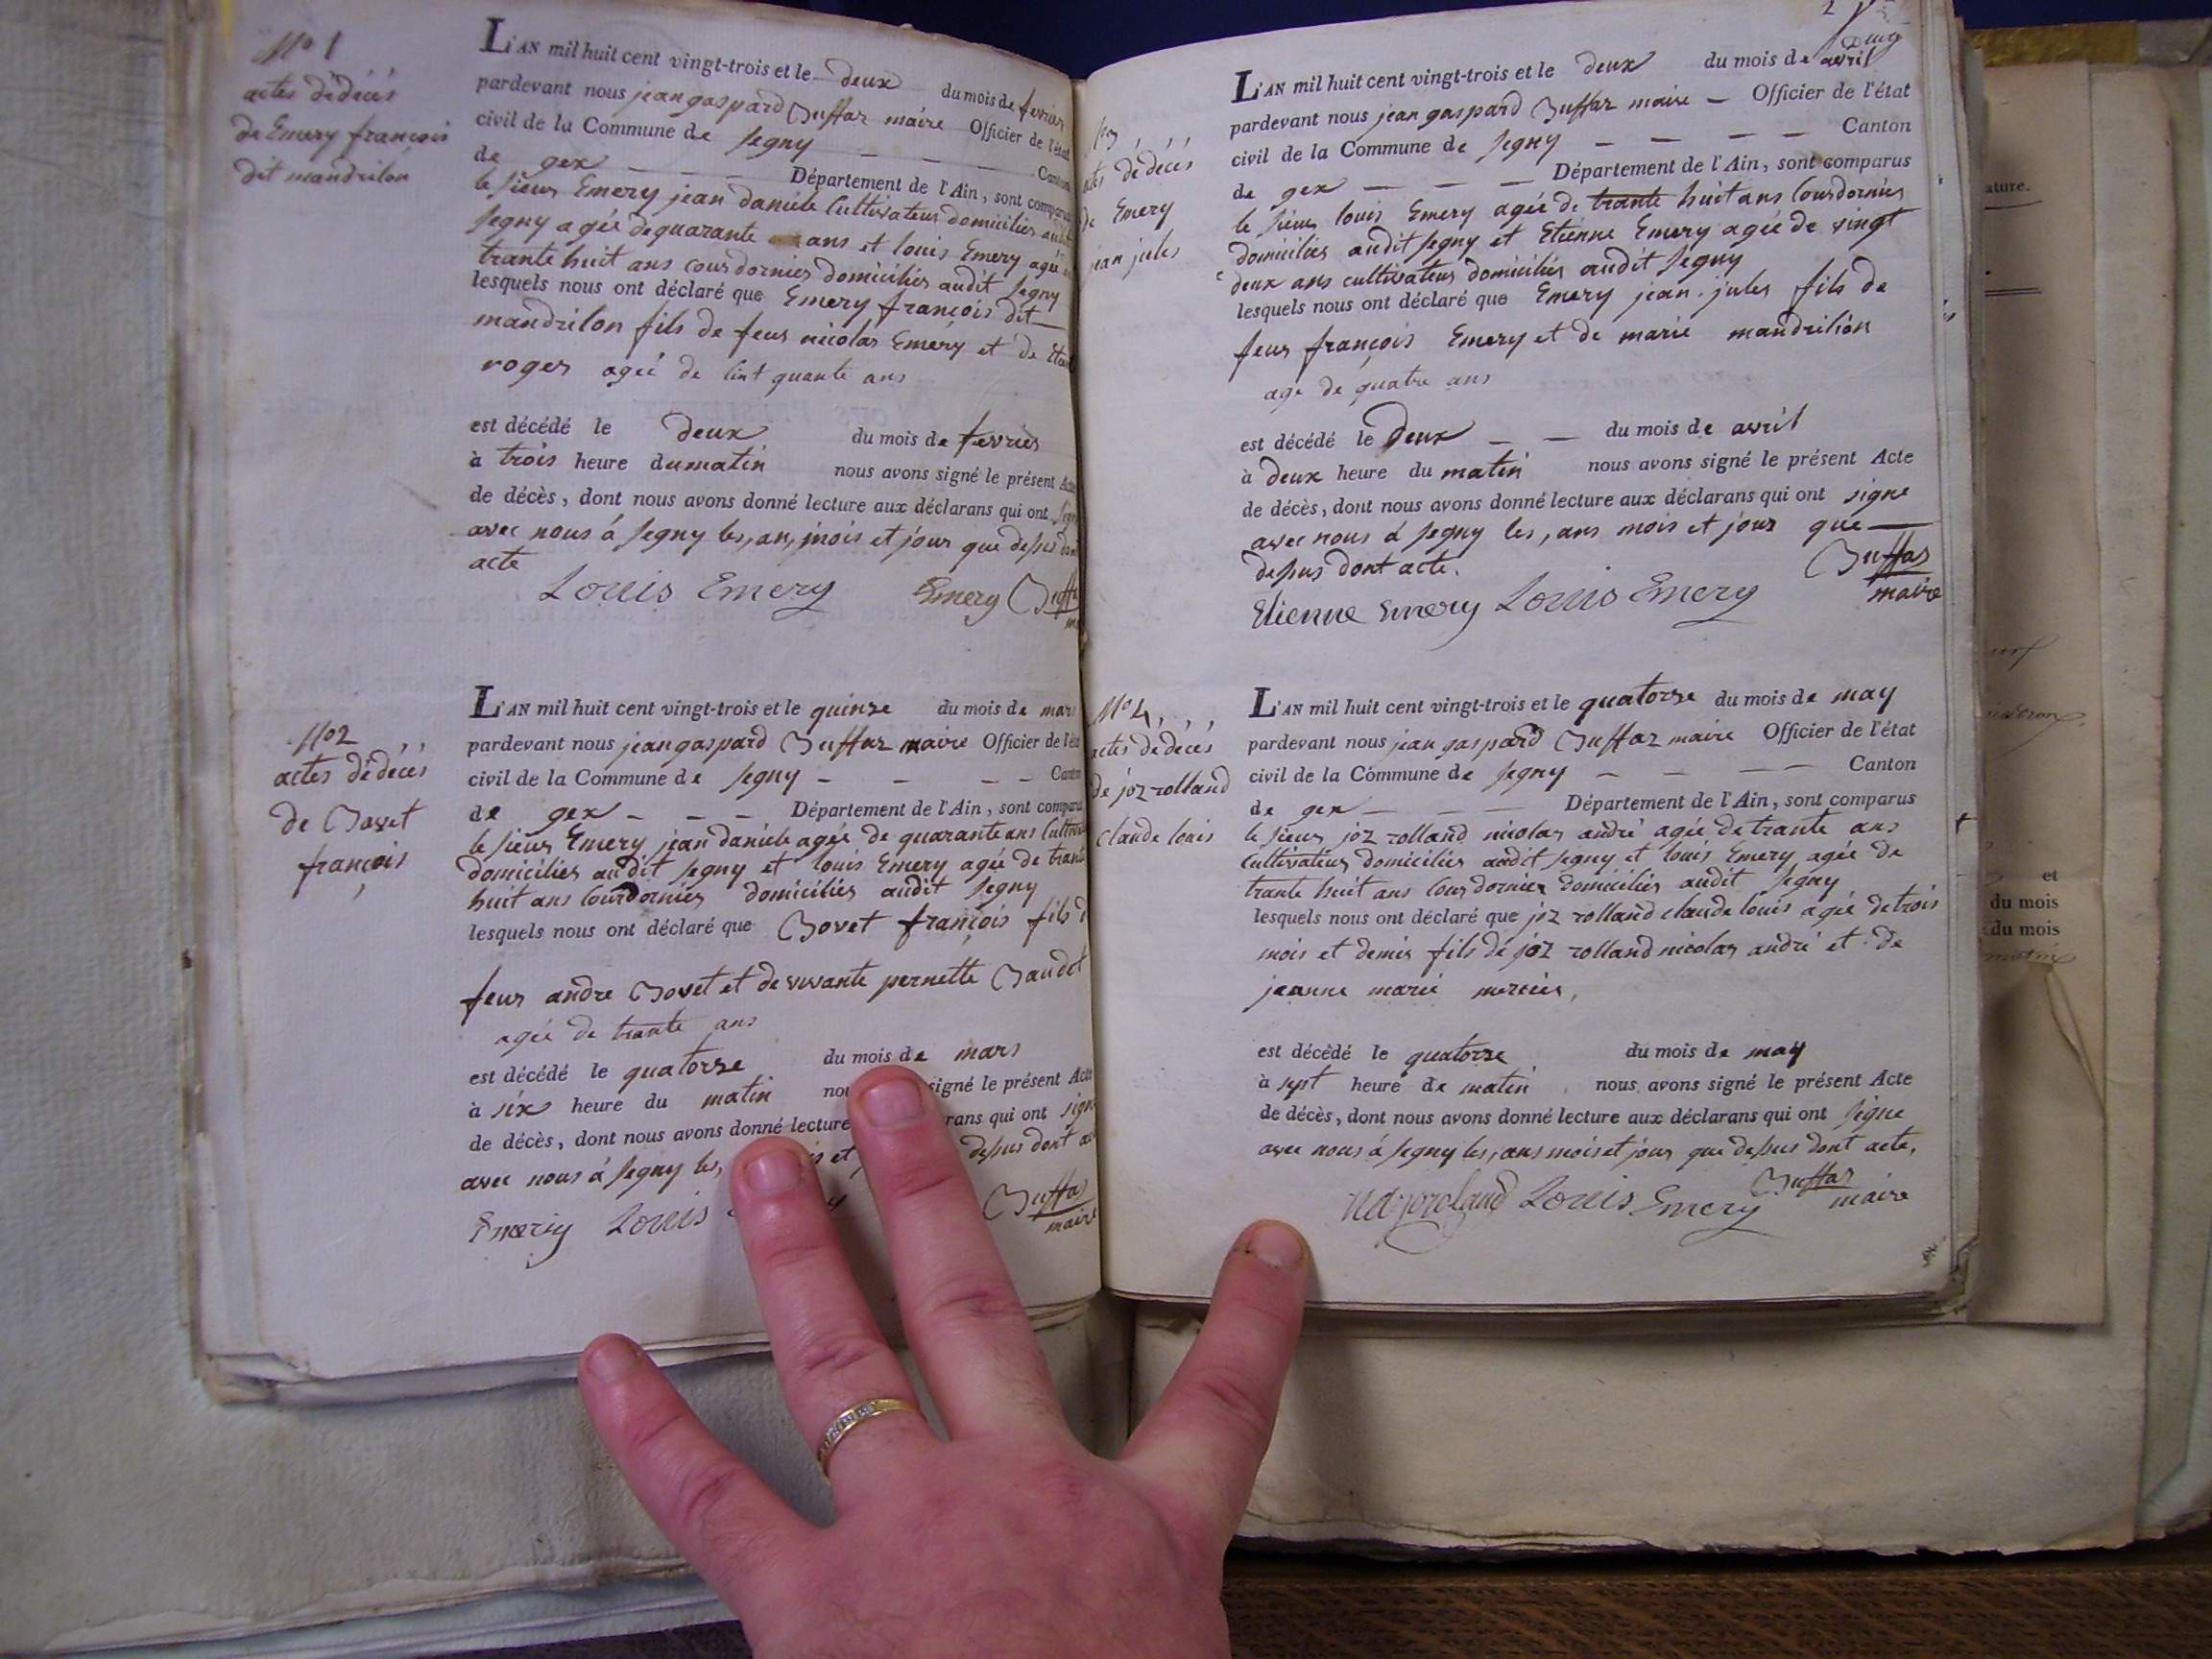 No 1
actes dédécés
de Emery françois
dit mandrilon
L'AN mil huit cent vingt-trois et le deux du mois de fevrier
pardevant nous jean gaspard Buffaz maire Officier de l'état
civil de la Commune de segny — — — Canton
de gex — — — Département de l'Ain, sont comparus
le sieur Emery jean daniele Cultivateur domiciliés audit
segny agée de quarante ans et louis Emery agée
trante huit ans cousdornier domiciliés audit segny
lesquels nous ont déclaré que Emery françois dit
mandrilon fils de feur nicolas Emery et de
roger agée de cint quante ans
est décédé le deux du mois de fevrier
à trois heure du matin nous avons signé le présent Acte
de décès, dont nous avons donné lecture aux déclarans qui ont signe
avec nous á segny les, an, mois et jour que dessus dont
acte
Louis Emery Emery Buffa
No 2
actes dédécés
de Bovet
françois
L'AN mil huit cent vingt-trois et le quinze du mois de mars
pardevant nous jean gaspard Buffaz maire Officier de l'état
civil de la Commune de segny — — — — Canton
de gex — — — Département de l'Ain, sont comparus
le sieur Emery jean daniele agée de quarante ans Cultiva
domiciliés audit segny et louis Emery agée de trante
huit ans Cousdornier domiciliés audit segny
lesquels nous ont déclaré que Bovet françois fils d
feur andre Bovet et de vivante pernette Baudet
agée de trante ans
est décédé le quatorze du mois de mars
à six heure du matin nou signé le présent Acte
de décès, dont nous avons donné lecture rans qui ont signe
avec nous á segny les, is et dessus dont
Emery Louis y Buffaz
maire
2
actes dedécés
de Emery
jean jules
L'AN mil huit cent vingt-trois et le deux du mois de avril
pardevant nous jean gaspard Buffaz maire — Officier de l'état
civil de la Commune de segny — — — — Canton
de gex — — — Département de l'Ain, sont comparus
le sieur louis Emery agée de trante huit ans Cousdornier
domiciliés audit segny et Etienne Emery agée de vingt
deux ans cultivateur domiciliés audit segny
lesquels nous ont déclaré que Emery jean jules fils de
feur françois Emery et de marie mandrilion
age de quatre ans
est décédé le deux — — du mois de avril
à deux heure du matin nous avons signé le présent Acte
de décès, dont nous avons donné lecture aux déclarans qui ont signe
avec nous á segny les, ans mois et jour que —
dessus dont acte.
Buffaz
maire
Etienne Emery Louis Emery
No 4
actes dedécés
de joz rolland
claude louis
L'AN mil huit cent vingt-trois et le quatorze du mois de may
pardevant nous jean gaspard Buffaz maire Officier de l'état
civil de la Commune de segny — — — — Canton
de gex — — — Département de l'Ain, sont comparus
le sieur joz rolland nicolas andré agée de trante ans
Cultivateur domiciliés audit segny et louis Emery agée de
trante huit ans Cousdornier domiciliés audit segny
lesquels nous ont déclaré que joz rolland claude louis agée de trois
mois et demis fils de joz rolland nicolas andré et de
jeanne marie mercier,
est décédé le quatorze du mois de may
à sept heure de matin nous avons signé le présent Acte
de décès, dont nous avons donné lecture aux déclarans qui ont signe
avec nous á segny les, ans mois et jour que dessus dont acte,
Louis Emery Buffaz
maire
ature.
et
du mois
du mois